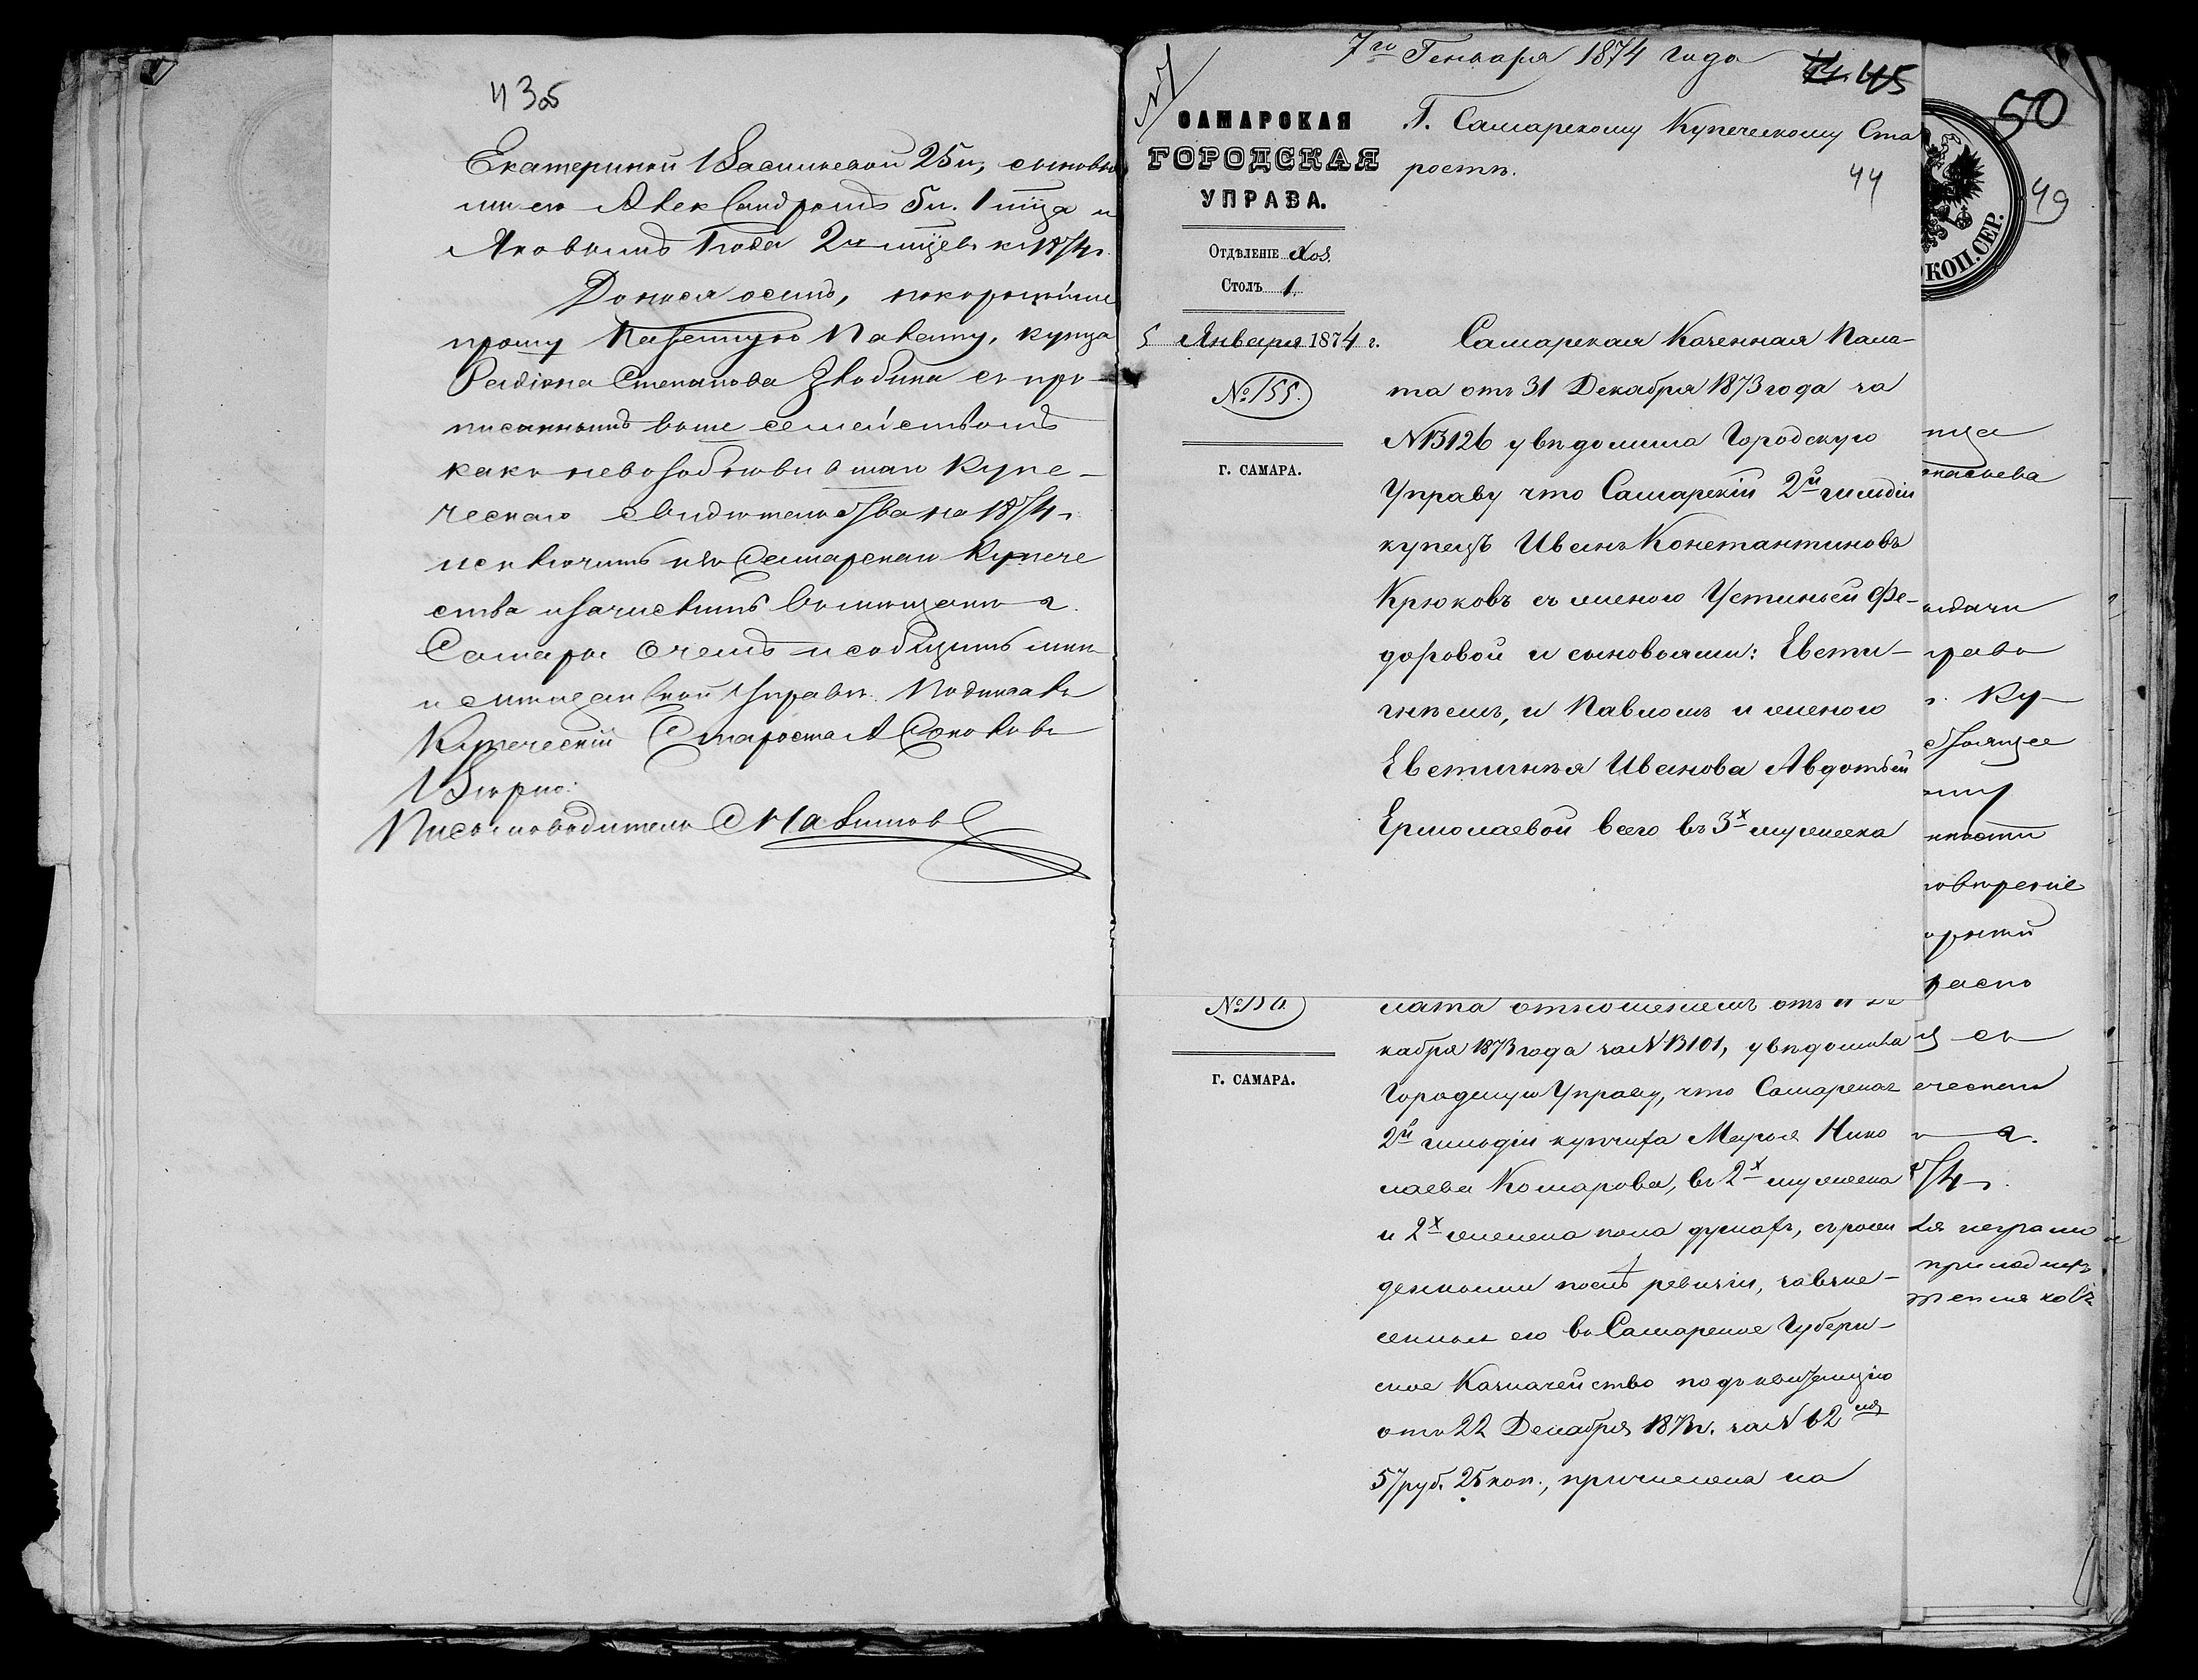 43об
Екатериной Васильевой 25 л., сыновья
ми ея Александромъ 5 л. 1 мѣца и
Яковымъ 1 года 2хъ мѣцевъ к 1874 г.
Донося о семъ, покорнѣйше
прошу Казенную Палату, купца
Родіона Степанова Злобина съ про-
писаннымъ выше семействомъ
какъ невозобновившаго Купе-
ческаго свидѣтельства на 1874 г.
исключить изъ Самарскаго Купече
ства и зачислить въ мѣщане г.
Самары о чемъ и сообщить мнѣ
и мѣщанской Управѣ. Подписалъ
Купеческій Староста А Соколовъ
Вѣрно:
Письмоводитель
№ 7
7го Генваря 1874 года
44. 45
САМАРСКАЯ
ГОРОДСКАЯ
УПРАВА.
Отдѣленіе Хоз.
Столъ 1.
5 Января 1874 г.
№ 155.
Г. САМАРА.
Г. Самарскому Купеческому Ста
ростѣ.
44
Самарская Казенная Пала-
та отъ 31 Декабря 1873 года за
№ 13126 увѣдомила Городскую
Управу что Самарскій 2й гильдіи
купецъ Иванъ Константиновъ
Крюковъ съ женою Устиньей Фе-
доровой и сыновьями: Евсти-
гнѣемъ, и Павломъ и женою
Евстигнѣя Иванова Авдотьей
Ермолаевой всего въ 3х мужеска
Г. САМАРА.
лата отношеніемъ отъ
кабря 1873 года за № 13101, увѣдомила
Городскую Управу, что Самарская
2й гильдіи купчиха Марья Нико
лаева Комарова, въ 2х мужеска
и 2х женска пола душахъ, съ рож
денными послѣ ревизіи, за взне-
сенные ею въ Самарское Губерн-
ское Казначейство подъ квитанцію
отъ 22 Декабря 1873 г. за №
57 руб. 25 коп., причислена на
50
49
КОП. СЕР.
пца
насьева
раво
Ку-
ности
овѣреніе
распо
съ
ческаго
г.
74 г.